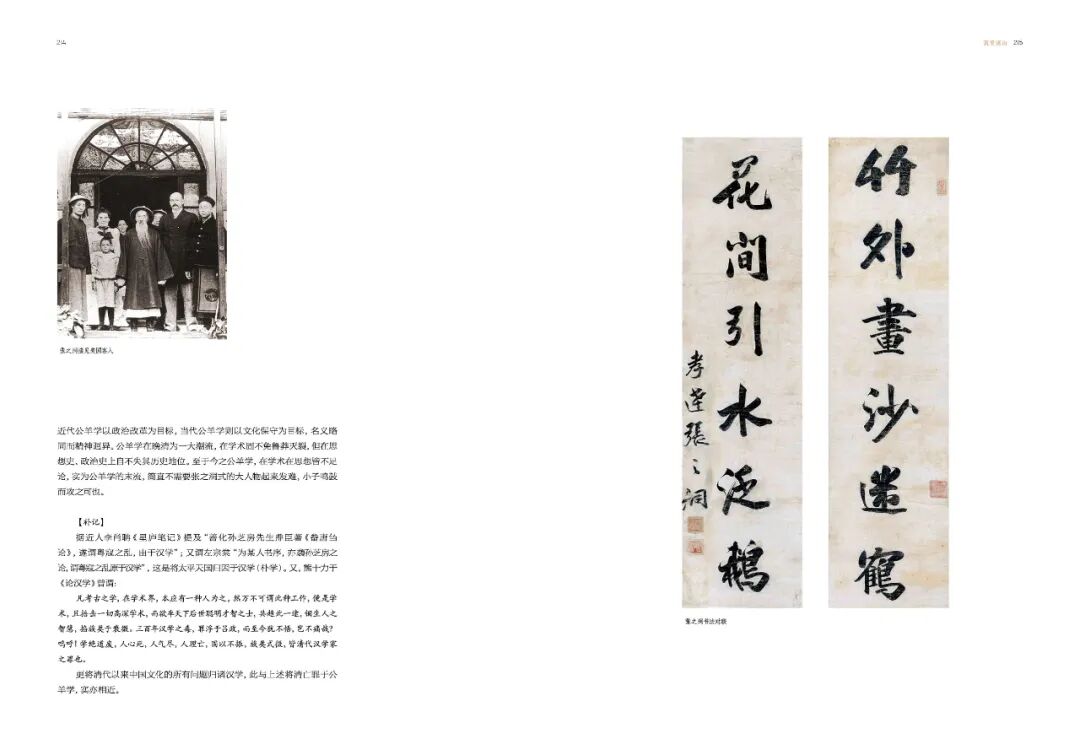 张之洞接见美国客人
近代公羊学以政治改革为目标，当代公羊学则以文化保守为目标，名义略
同而精神迥异。公羊学在晚清为一大潮流，在学术固不免鲁莽灭裂，但在思
想史、政治史上自不失其历史地位。至于今之公羊学，在学术在思想皆不足
论，实为公羊学的末流，简直不需要张之洞式的大人物起来发难，小子鸣鼓
而攻之可也。
【补记】
据近人李肖聃《星庐笔记》提及“善化孙芝房先生鼎臣著《畚塘刍
论》，遂谓粤寇之乱，由于汉学”；又谓左宗棠“为某人书序，亦袭孙芝房之
论，谓粤寇之乱原于汉学”，这是将太平天国归因于汉学（朴学）。又，熊十力于
《论汉学》曾谓：
凡考古之学，在学术界，本应有一种人为之，然万不可谓此种工作，便是学
术，且掊击一切高深学术，而欲率天下后世聪明才智之士，共趋此一途，锢生人之
智慧，陷族类于衰微。三百年汉学之毒，罪浮于吕政，而至今犹不悟，岂不痛哉？
呜呼！学绝道废，人心死，人气尽，人理亡，国以不振，族类式微，皆清代汉学家
之罪也。
更将清代以来中国文化的所有问题归诸汉学，此与上述将清亡罪于公
羊学，实亦相近。
竹外畫沙鶴
花間引水泛鵝
孝達張之洞
张之洞书法对联